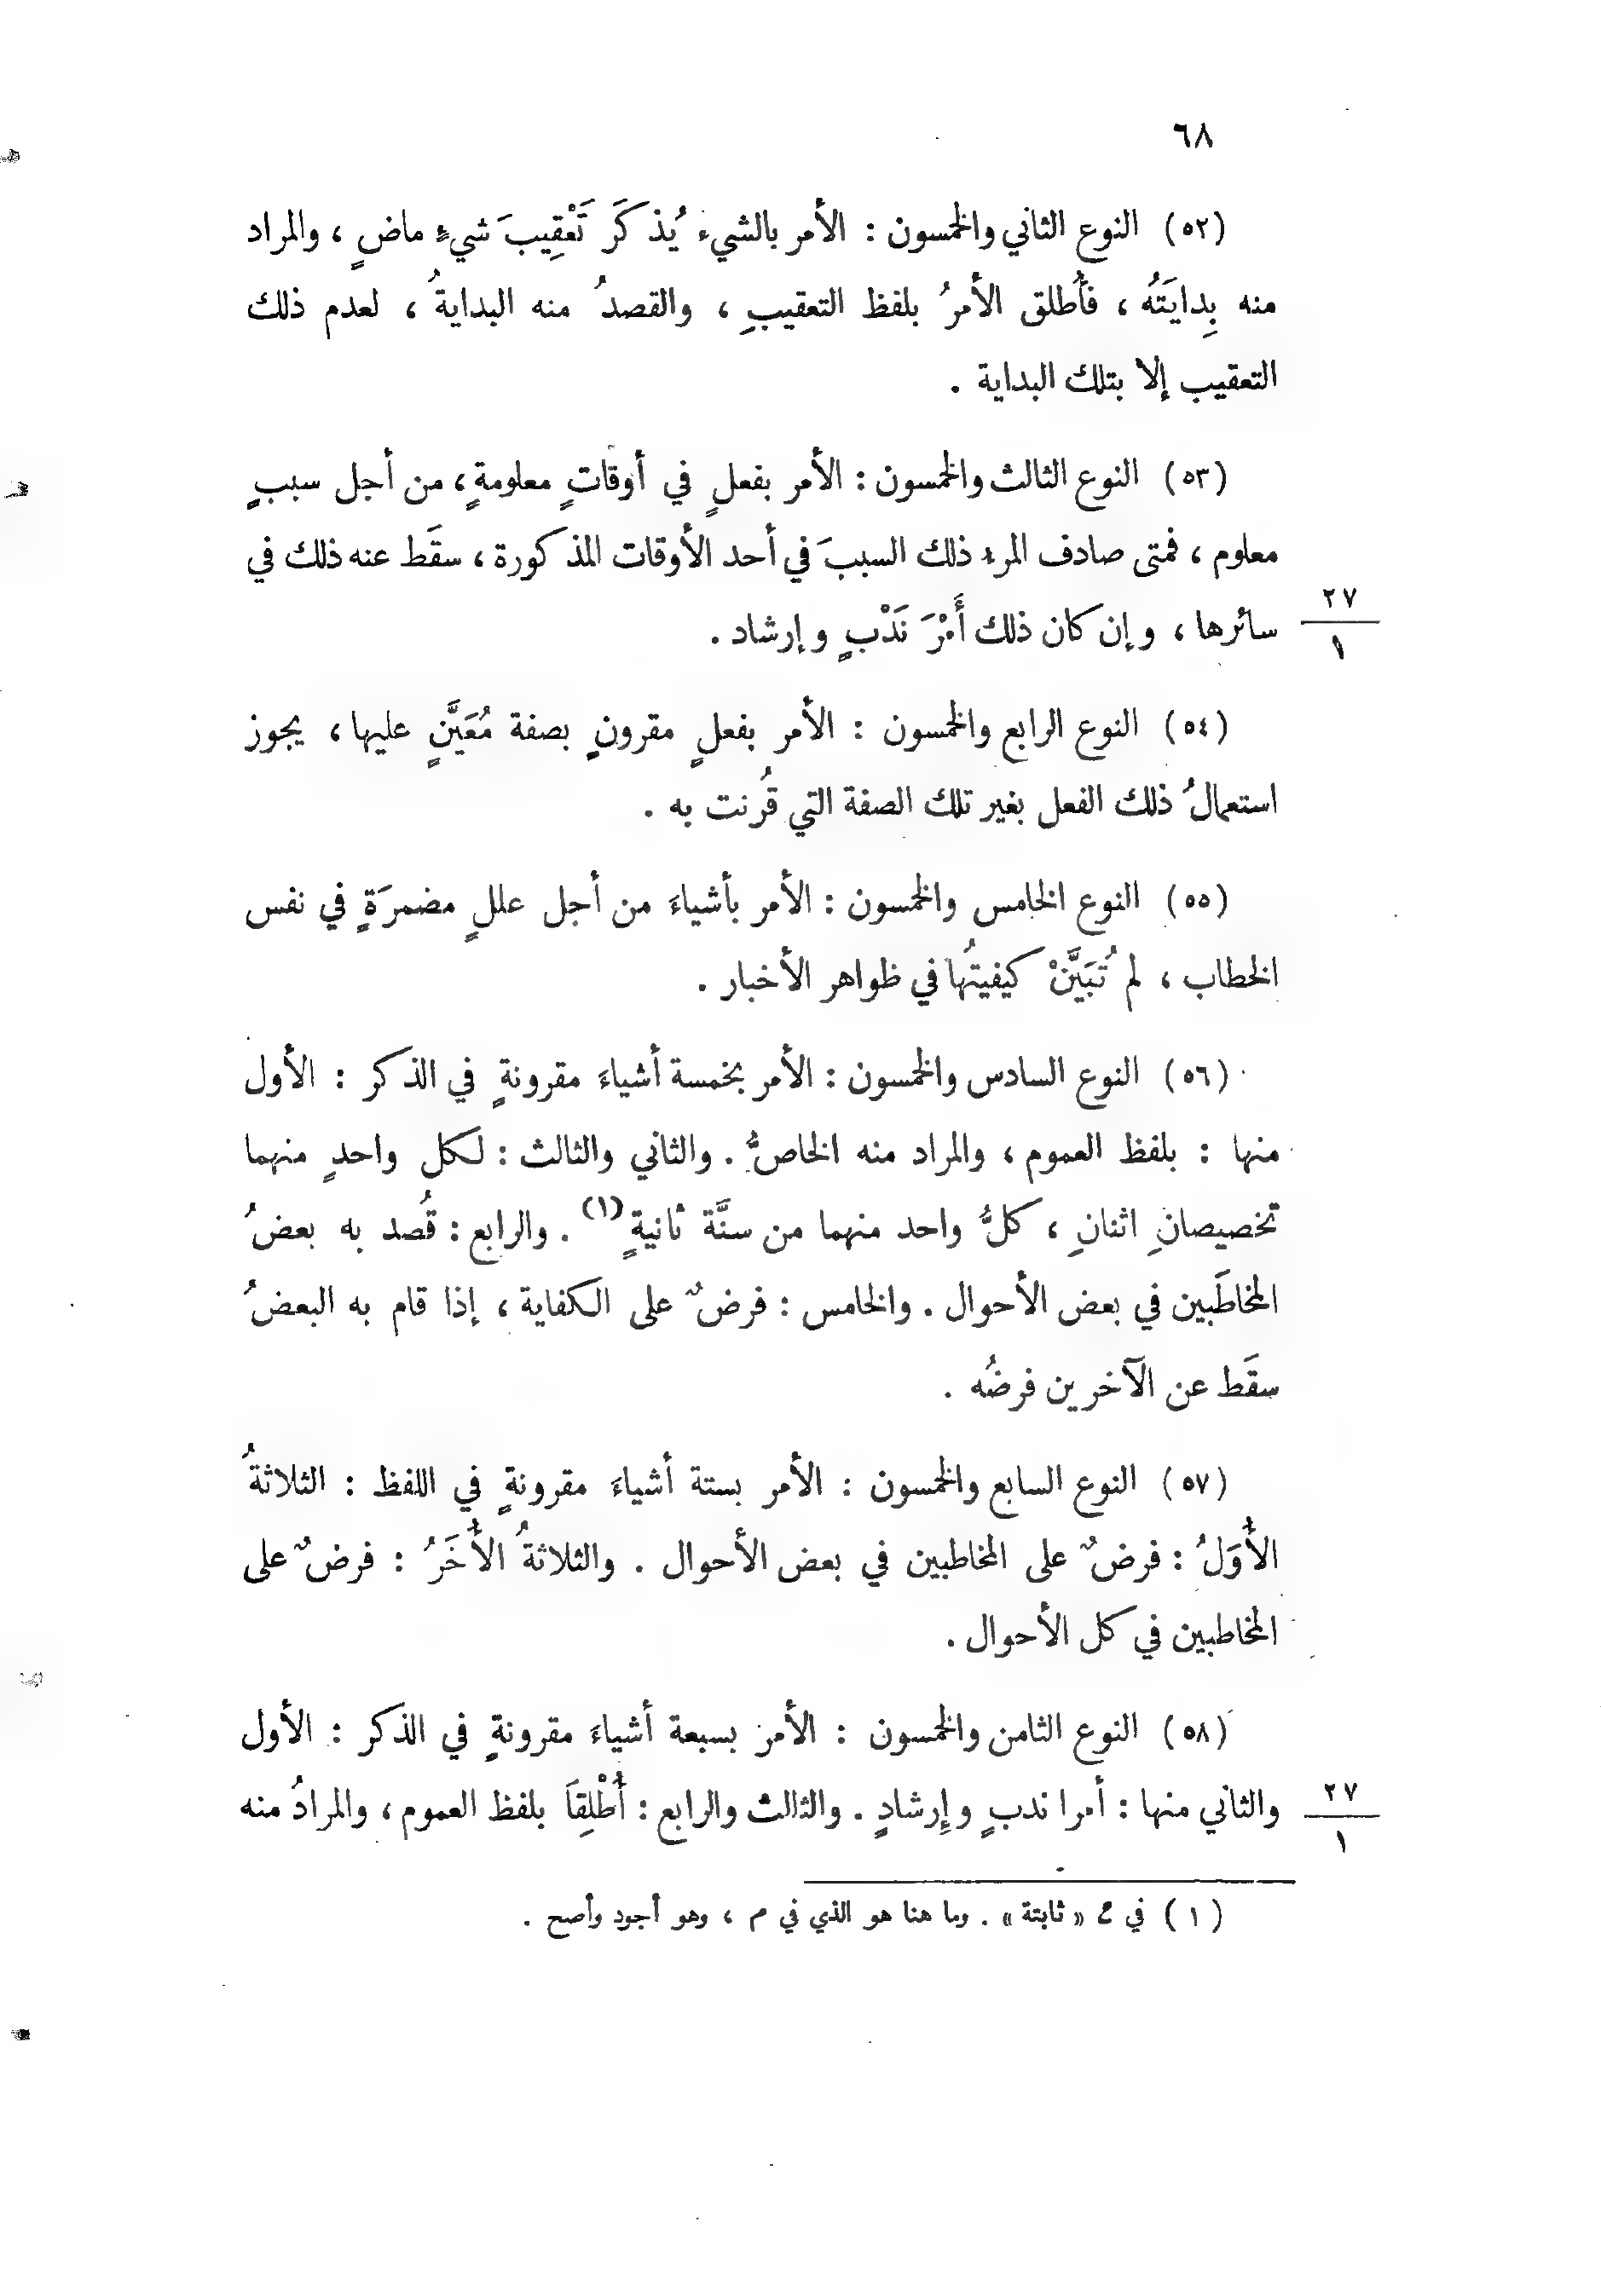 ٦٨
(٥٢) النوع الثاني والخمسون : الأمر بالشيء يُذكَرَ تَعْقِيبَ شيءٍ ماضٍ ، والمراد
منه بِدايَتَهُ ، فأُطلق الأمرُ بلفظ التعقيبِ ، والقصدُ منه البدايةُ ، لعدم ذلك
التعقيب إلا بتلك البداية .
(٥٣) النوع الثالث والخمسون : الأمر بفعلٍ في أوقاتٍ معلومةٍ ، من أجل سببٍ
معلوم ، فمتى صادف المرء ذلك السببَ في أحد الأوقات المذكورة ، سقَط عنه ذلك في
سائرها ، وإن كان ذلك أَمْرَ نَدْبٍ وإرشاد .
٢٧
١
(٥٤) النوع الرابع والخمسون : الأمر بفعلٍ مقرونٍ بصفة مُعَيَّنٍ عليها ، يجوز
استعمالُ ذلك الفعل بغير تلك الصفة التي قُرنت به .
(٥٥) النوع الخامس والخمسون : الأمر بأشياءَ من أجل عللٍ مضمرَةٍ في نفس
الخطاب ، لم تُبَيَّنْ كيفيتُها في ظواهر الأخبار .
(٥٦) النوع السادس والخمسون : الأمر بخمسة أشياءَ مقرونةٍ في الذكر : الأول
منها : بلفظ العموم ، والمراد منه الخاصُّ . والثاني والثالث : لكل واحدٍ منهما
تخصيصانِ اثنانِ ، كلُّ واحد منهما من سنَّة ثانيةٍ (١) . والرابع : قُصد به بعضُ
المخاطَبين في بعض الأحوال . والخامس : فرضٌ على الكفاية ، إذا قام به البعضُ
سقَط عن الآخرين فرضُه .
(٥٧) النوع السابع والخمسون : الأمر بستة أشياءَ مقرونةٍ في اللفظ : الثلاثةُ
الأُوَلُ : فرضٌ على المخاطبين في بعض الأحوال . والثلاثةُ الأُخَرُ : فرضٌ على
المخاطبين في كل الأحوال .
(٥٨) النوع الثامن والخمسون : الأمر بسبعة أشياءَ مقرونةٍ في الذكر : الأول
والثاني منها : أمرا ندبٍ وإِرشادٍ . والثالث والرابع : أُطْلِقاَ بلفظ العموم ، والمرادُ منه
٢٧
١
(١) في ع « ثابتة » . وما هنا هو الذي في م ، وهو أجود وأصح .